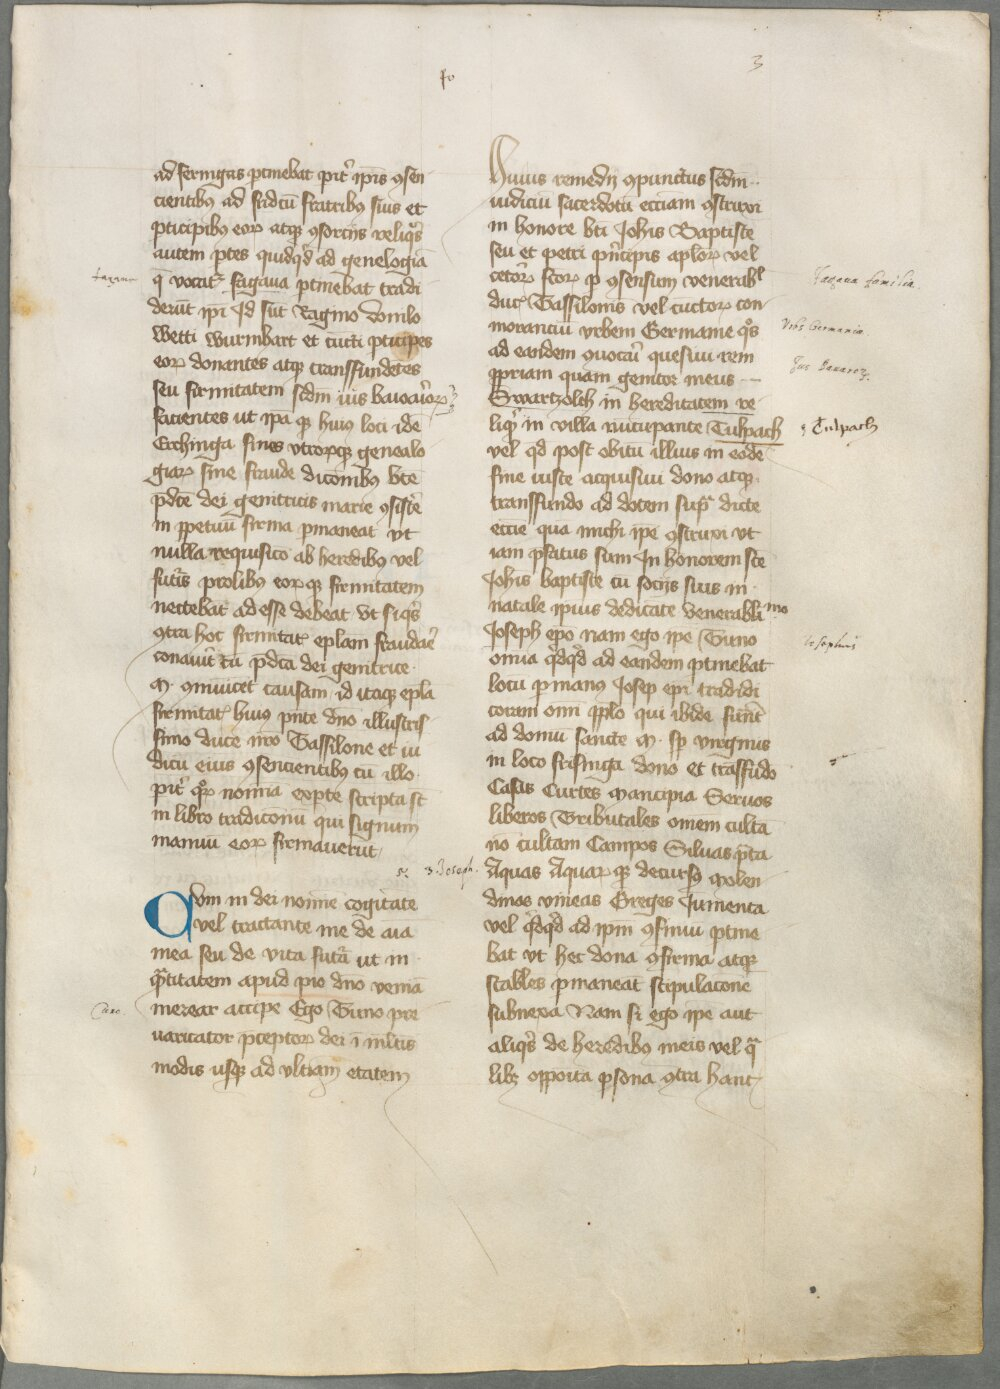 fo
3
ad feringas ptinebat pit ipis ꝯsen
cientibꝫ ad sudctu fratribꝫ suis et
pticipibꝫ eoꝝ atqꝫ ꝯsorcijs reliqs
autem ptes quidqd ad genelogia
q vocat fagana ptinebat tradi
derut ipi Id sut Ragino Vonilo
Wetti Wurmhart et cucti pticipes
eoꝝ donantes atqꝫ transfundetes
seu firmitatem scdm ius bauoarioꝝ
facientes ut ipa qꝫ huius loci ide
Erchinga fines utroꝝqꝫ genealo
giaꝝ sine fraude dicionibꝫ bte
pdcte dei genitricis marie ꝯsiste
in ppetuu firma pmaneat vt
nulla requisico ab heredibꝫ vel
futis prolibꝫ eoꝝqꝫ firmitatem
nectebat ad esse debeat Vt siqs
ꝯtra hoc firmitat eplam fraudae
conauit cu pdcta dei genitrice
M. ꝯmuicet causam id itaqꝫ epla
firmitat huius pnte dno illustris
simo duce nro Tassilone et iu
dicu eius ꝯsencientibꝫ cu illo
pit qꝝ nomina expte scripta st
in libro tradiconu qui signum
manuu eoꝝ firmaverut
3. Joseph.
Cum in dei nomine cogitate
vel tractante me de aia
mea seu de vita futa ut in
qtitatem apud pio dno venia
merear accipe Ego Cuno pre
uaricator pceptoꝝ dei i mltis
modis usqꝫ ad vltiam etatem
Cuno.
Huius remedij ꝯpunctus scdm
iudiciu sacerdotu ecciam ꝯstruxi
in honore bti Johis Baptiste
seu et petri pncipis aploꝝ vel
cetoꝝ scoꝝ p ꝯsensum venerabl
duc Tassilonis vel cuctoꝝ com
moranciu vrbem Germanie qs
ad eandem quocu quesiui rem
ppriam quam genitor meus
Swartzolch in hereditatem re
liq in villa nucupante Tulpach
vel qd post obitu illius in eode
fine iuste acquisiui dono atqꝫ
transfundo ad dotem sup dicte
eccie qua michi ipe ꝯstruxi vt
iam pfatus sum In honorem sce
Johis baptiste cu socijs suis in
natale ipius dedicate venerabli imo
Joseph epo nam ego ipe Cuno
omia qdqd ad eandem ptinebat
locu p manꝫ Josep epi tradidi
coram omi pplo qui ibide fuert
ad domu sancte M. sp virginis
in loco frisinga dono et trasfudo
Casis Curtes Mancipia Seruos
liberos Tributales omem culta
no cultam Campos Siluas pta
Aquas Aquaꝝ qꝫ decursꝫ Molen
dinos vineas Greges Jumenta
vel qdqd ad ipm ꝯfiniu ptine
bat vt hec dona ꝯfirma atqꝫ
stabiles pmaneat stipulacone
subnexa Nam si ego ipe aut
aliqs de heredibꝫ meis vel q
libꝫ opposita psona ꝯtra hanc
Fagana familia.
Vrbs Germania
Jus Bauaroꝝ.
Tulpach
Josephus